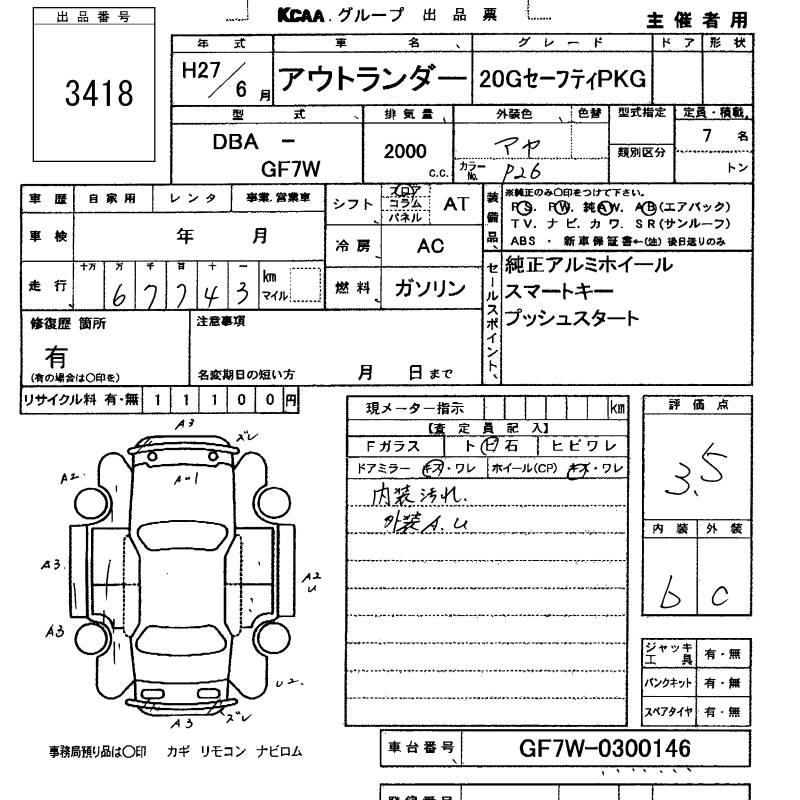 KCAA.グループ 出品票
主催者用
出品番号
3418
年式 車名、 グレード ドア 形状
H27/6月 アウトランダー 20GセーフティPKG
型式、 排気量、 外装色 色替 型式指定 定員・積載
DBA － GF7W 2000 c.c. アヤ 7 名
カラーNo. P26 類別区分 トン
車歴 自家用 レンタ 事業.営業車
シフト フロア コラム パネル AT
装備品、 ※純正のみ〇印をつけて下さい。
PS. PW. 純AW. AB(エアバック)
TV. ナビ. カワ. SR(サンルーフ)
ABS ・ 新車保証書←(注) 後日送りのみ
車検 年 月
冷房 AC
走行、 十万 万 千 百 十 一 km マイル
6 7 7 4 3
燃料 ガソリン
セールスポイント、
純正アルミホイール
スマートキー
プッシュスタート
修復歴 箇所 注意事項
有
(有の場合は〇印を) 名変期日の短い方 月 日まで
リサイクル料 有・無 1 1 1 0 0 円
現メーター指示 km
評価点
3.5
【査定員記入】
Fガラス トビ石 ヒビワレ
ドアミラー キズ・ワレ ホイール(CP) キズ・ワレ
内装汚れ.
外装A.U
内装 外装
b c
A3 ズレ
A2. A-1
A3. A2 U
A3
U2.
A3 ズレ
ジャッキ工具 有・無
パンクキット 有・無
スペアタイヤ 有・無
車台番号 GF7W-0300146
事務局預り品は〇印 カギ リモコン ナビロム